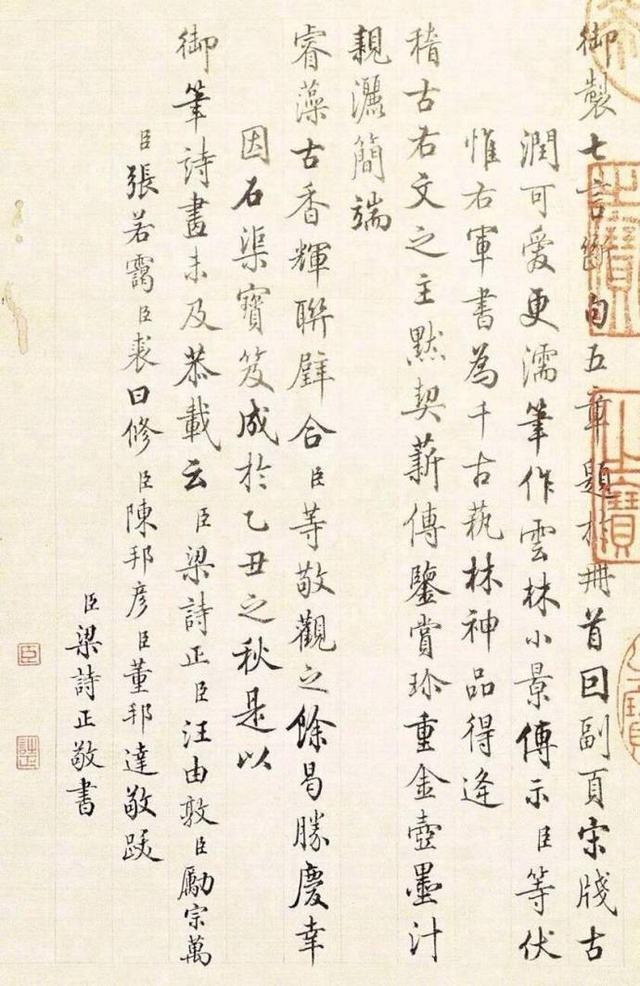 御製七言斷句五章題於冊首因副頁宋牋古
潤可愛更濡筆作雲林小景傳示臣等伏
惟右軍書為千古蓺林神品得逢
稽古右文之主默契薪傳鑒賞珍重金壺墨汁
親灑簡端
睿藻古香輝聯辟合臣等敬觀之餘曷勝慶幸
因石渠寶笈成於乙丑之秋是以
御筆詩畫未及恭載云臣梁詩正臣汪由敦臣勵宗萬
臣張若靄臣裘曰修臣陳邦彥臣董邦達敬跋
臣梁詩正敬書
臣
詩正
之寶